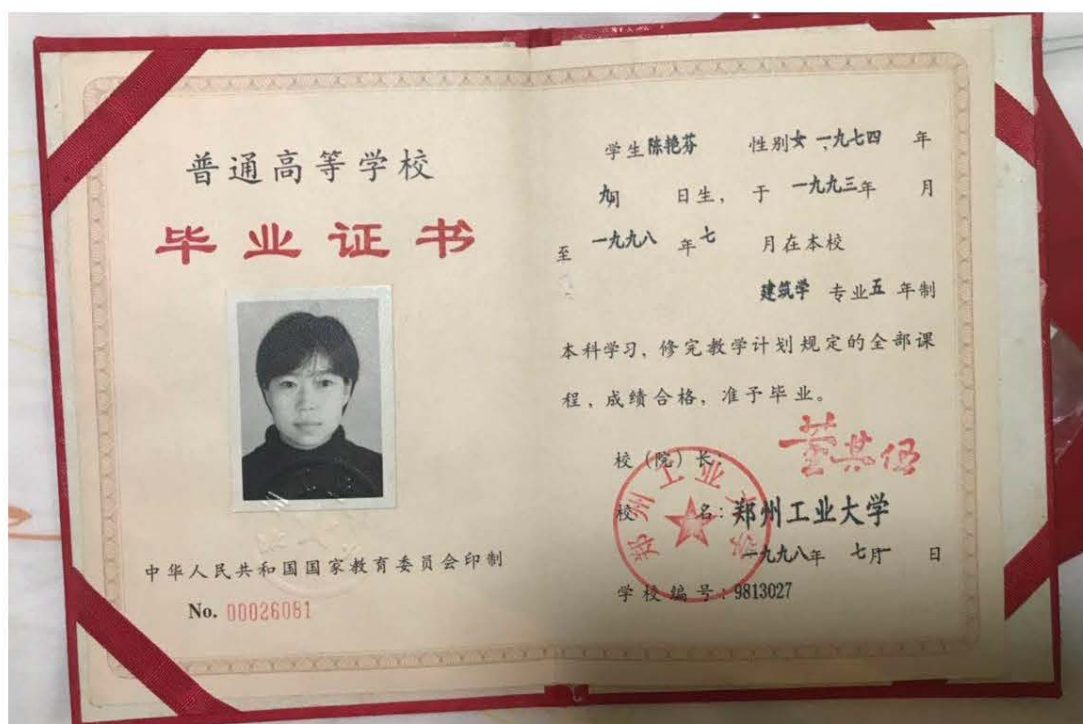 普通高等学校
毕业证书
中华人民共和国国家教育委员会印制
No. 00026081
学生陈艳芬 性别女 一九七四 年
九月 日生，于 一九九三年 月
至 一九九八 年 七 月在本校
建筑学 专业五 年制
本科学习，修完教学计划规定的全部课
程，成绩合格，准予毕业。
校（院）长：
董其伍
校 名：郑州工业大学
郑州工业大学
一九九八年 七月一 日
学校编号：9813027